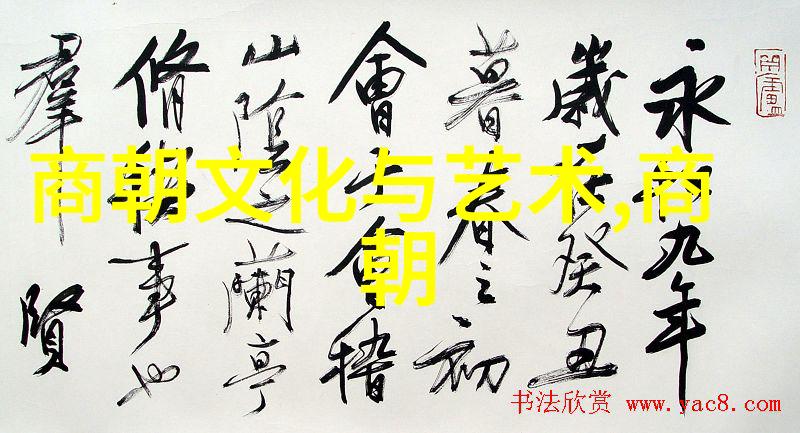 永和九年
歲在癸丑
暮春之初
會于會稽
山陰之蘭亭
脩禊事也
羣賢
商朝文化与艺术,商
朝
书法欣赏 www.yac8.com